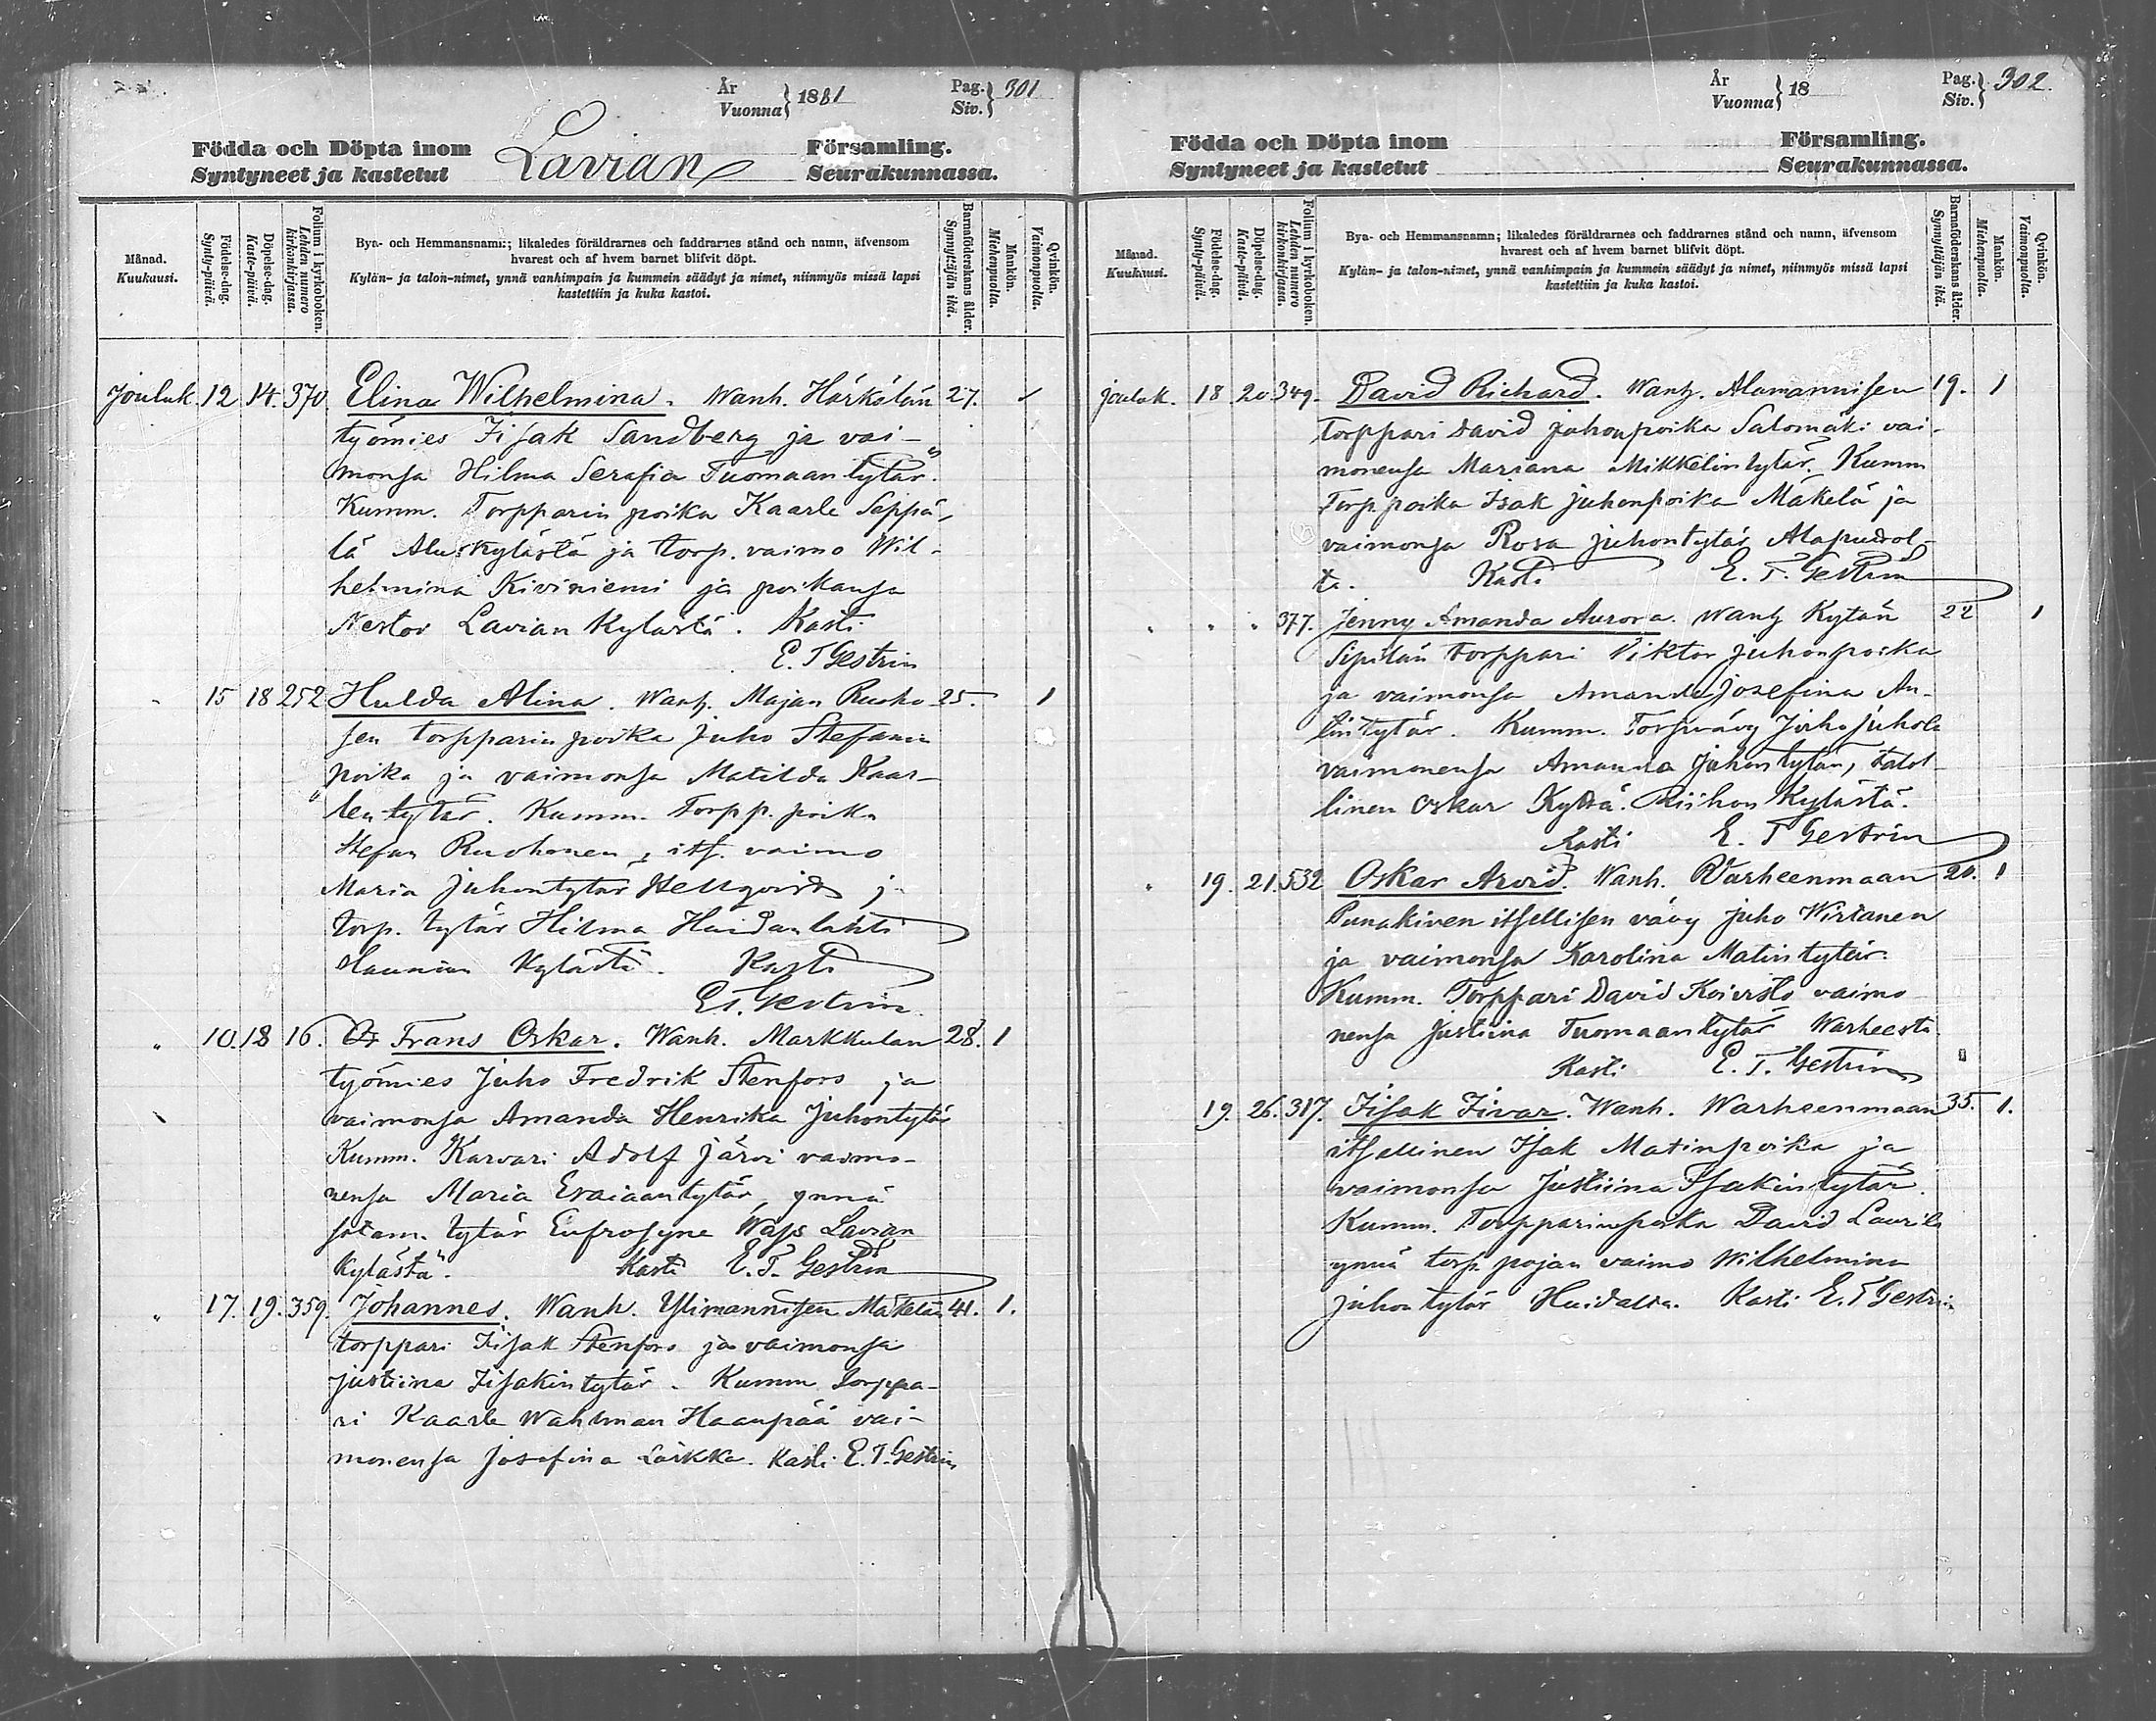 År
Vuonna } 1881
Pag.
Siv. } 301
Födda och Döpta inom
Syntyneet ja kastetut
Lavian
Församling.
Seurakunnassa.
Månad.
Kuukausi.
Födelse-dag.
Synty-päivä.
Döpelse-dag.
Kaste-päivä.
Folium i kyrkoboken.
Lehden numero kirkonkirjassa.
Bya- och Hemmansnamn; likaledes föräldrarnes och faddrarnes stånd och namn, äfvensom
hvarest och af hvem barnet blifvit döpt.
Kylän- ja talon-nimet, ynnä vanhimpain ja kummein säädyt ja nimet, niinmyös missä lapsi
kastettiin ja kuka kastoi.
Barnaföderskans ålder.
Synnyttäjän ikä.
Mankön.
Miehenpuolia.
Qvinkön.
Vaimonpuolia.
Jouluk. 12 14. 370. Elina Wilhelmina. Wanh. Härkölän 27.
työmies Iisak Sandberg ja vai-
monsa Hilma Serafia Tuomaantytär.
Kumm. Torpparin poika Kaarle Seppä-
lä Aluskylästä ja torp. vaimo Wil-
helmina Kiviniemi ja poikansa
Nestor Lavian kylästä. Kasti
E. T Gestrin
15 18 252 Hulda Alina. Wanh. Majan 25. 1
sen torpparin poika Juho Stefanin
poika ja vaimonsa Matilda Kaar-
lentytär. Kumm. Torpp. poika
Stefan Ruohonen, its. vaimo
Maria Juhontytär Hellqvist j
torp. tytär Hilma Haidanlahti
kylästä. Kasti
E. T. Gestrin.
" 10. 18 16. Frans Oskar. Wanh. Markkulan 28. 1
työmies Juho Fredrik Stenfors ja
vaimonsa Amanda Henrika Juhontytär
Kumm. Karvari Adolf Järvi vaimo-
nensa Maria Esaiaantytär, ynnä
sotam. tytär Eufrosyne Wass Lavian
kylästä. Kasti E. T. Gestrin
" 17. 19. 359. Johannes. Wanh. Ylimannisen Mäkelän 41. 1.
torppari Iisak Stenfors ja vaimonsa
Justiina Iisakintytär. Kumm. torppa-
ri Kaarle Wahlman Haanpää vai-
monensa Josefina Laikka. Kasti E. T. Gestrin
År
Vuonna } 18
Pag.
Siv. } 302.
Födda och Döpta inom
Syntyneet ja kastetut
Församling.
Seurakunnassa.
Månad.
Kuukausi.
Födelse-dag.
Synty-päivä.
Döpelse-dag.
Kaste-päivä.
Folium i kyrkoboken.
Lehden numero kirkonkirjassa.
Bya- och Hemmansnamn; likaledes föräldrarnes och faddrarnes stånd och namn, äfvensom
hvarest och af hvem barnet blifvit döpt.
Kylän- ja talon-nimet, ynnä vanhimpain ja kummein säädyt ja nimet, niinmyös missä lapsi
kastettiin ja kuka kastoi.
Barnaföderskans ålder.
Synnyttäjän ikä.
Mankön.
Miehenpuolia.
Qvinkön.
Vaimonpuolia.
jouluk. 18 20. 349. David Richard. Wanh. Alamannisen 19. 1
torppari David Juhonpoika Salomäki vai-
monensa Mariana Mikkelintytär. Kumm
Torp poika Isak Juhonpoika Mäkelä ja
vaimonsa Rosa Juhontytär
ta. Kasti E. T. Gestrin
" " " 377. Jenny Amanda Aurora. Wanh Kytän 22 1
Sipilän torppari Viktor Juhonpoika
ja vaimonsa Amanda Josefina An-
tintytär. Kumm. Torp vävy Juho Juhola
vaimonensa Amanda Juhontytär, talol-
linen Oskar Kyttä. Riihon kylästä.
Kasti E. T Gestrin
" 19. 21. 532 Oskar Arvid. Wanh. Warheenmaan 20. 1
Punakiven itsellisen vävy Juho Wirtanen
ja vaimonsa Karolina Matintytär.
Kumm. Torppari David Koivisto vaimo
nensa Justiina Tuomaantytär Warheesta.
Kasti E. T. Gestrin
19. 26. 317. Iisak Iivar. Wanh. Warheenmaan 35. 1.
itsellinen Isak Matinpoika ja
vaimonsa Justiina Isakintytär.
Kumm. Torpparinpoika David Laurila
ynnä torp. pojan vaimo Wilhelmina
Juhontytär Huidasta. Kasti E. T Gestrin